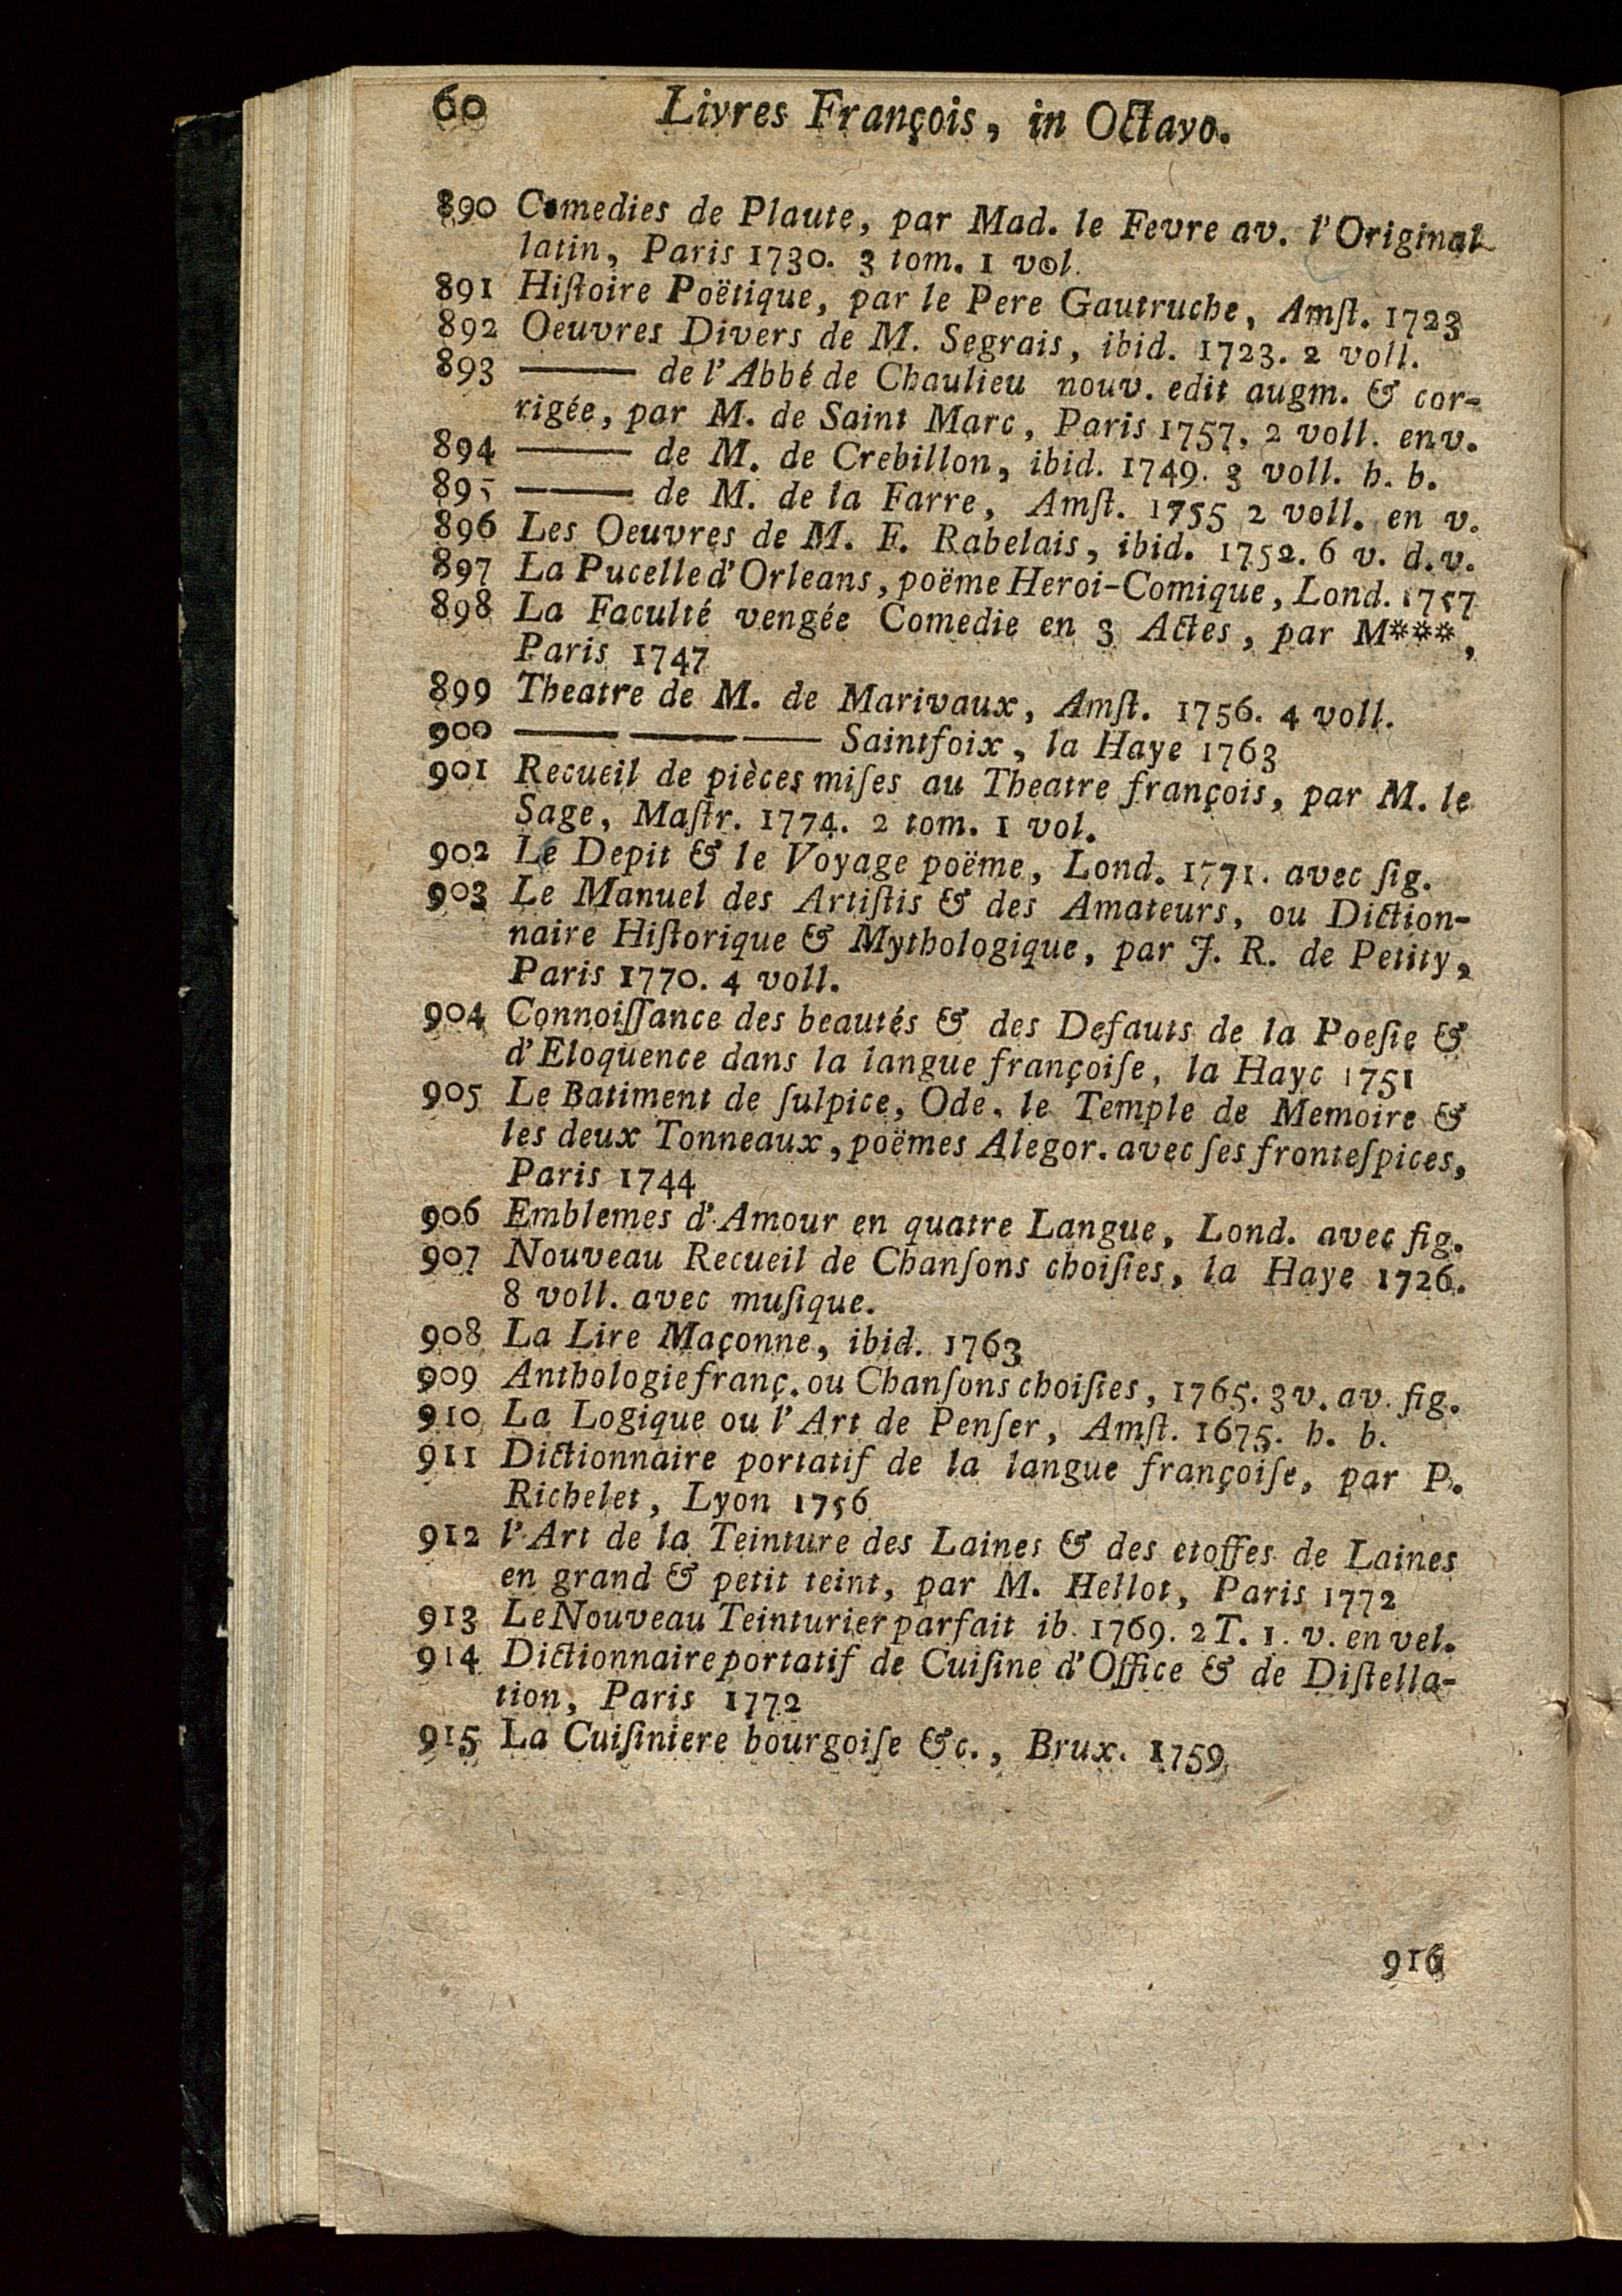 60 Livres François, in Octavo.
890 Comedies de Plaute, par Mad. le Fevre av. l'Original
latin, Paris 1730. 3 tom. 1 vol.
891 Hiſtoire Poëtique, par le Pere Gautruche, Amſt. 1723
892 Oeuvres Divers de M. Segrais, ibid. 1723. 2 voll.
893 ——— de l'Abbé de Chaulieu nouv. edit augm. & cor-
rigée, par M. de Saint Marc, Paris 1757, 2 voll. env.
894 ——— de M. de Crebillon, ibid. 1749. 3 voll. h. b.
895 ——— de M. de la Farre, Amſt. 1755 2 voll. en v.
896 Les Oeuvres de M. F. Rabelais, ibid. 1752. 6 v. d. v.
897 La Pucelle d'Orleans, poëme Heroi-Comique, Lond. 1757
898 La Faculté vengée Comedie en 3 Actes, par M***,
Paris 1747
899 Theatre de M. de Marivaux, Amſt. 1756. 4 voll.
900 ——— ——— ——— Saintfoix, la Haye 1763
901 Recueil de pièces miſes au Theatre françois, par M. le
Sage, Maſtr. 1774. 2 tom. 1 vol.
902 Le Depit & le Voyage poëme, Lond. 1771. avec ſig.
903 Le Manuel des Artiſtis & des Amateurs, ou Diction-
naire Hiſtorique & Mythologique, par J. R. de Petity,
Paris 1770. 4 voll.
904 Connoiſſance des beautés & des Defauts de la Poeſie &
d'Eloquence dans la langue françoiſe, la Hayc 1751
905 Le Batiment de ſulpice, Ode, le Temple de Memoire &
les deux Tonneaux, poëmes Alegor. avec ſes fronteſpices,
Paris 1744
906 Emblemes d'Amour en quatre Langue, Lond. avec fig.
907 Nouveau Recueil de Chanſons choiſies, la Haye 1726.
8 voll. avec muſique.
908 La Lire Maçonne, ibid. 1763
909 Anthologie franç. ou Chanſons choiſies, 1765. 3 v. av. fig.
910 La Logique ou l'Art de Penſer, Amſt. 1675. h. b.
911 Dictionnaire portatif de la langue françoiſe, par P.
Richelet, Lyon 1756
912 l'Art de la Teinture des Laines & des etoffes de Laines
en grand & petit teint, par M. Hellot, Paris 1772
913 Le Nouveau Teinturier parfait ib. 1769. 2 T. 1. v. en vel.
914 Dictionnaire portatif de Cuiſine d'Office & de Diſtella-
tion, Paris 1772
915 La Cuiſiniere bourgoiſe &c., Brux. 1759
916